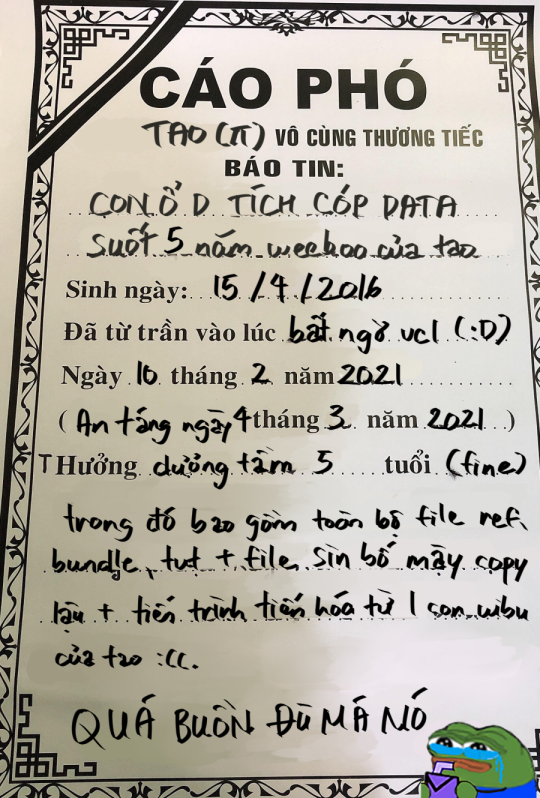 CÁO PHÓ
TAO (π) VÔ CÙNG THƯƠNG TIẾC
BÁO TIN:
CON Ổ D TÍCH CÓP DATA
suốt 5 năm weeboo của tao
Sinh ngày: 15/4/2016
Đã từ trần vào lúc bất ngờ vcl (:D)
Ngày 16 tháng 2 năm 2021
( An táng ngày 4 tháng 3 năm 2021 )
Hưởng dưỡng tầm 5 tuổi (fine)
trong đó bao gồm toàn bộ file ref,
bundle, tut + file sin bố mày copy
lậu + tiến trình tiến hóa từ 1 con wibu
của tao :((.
QUÁ BUỒN ĐÙ MÁ NÓ